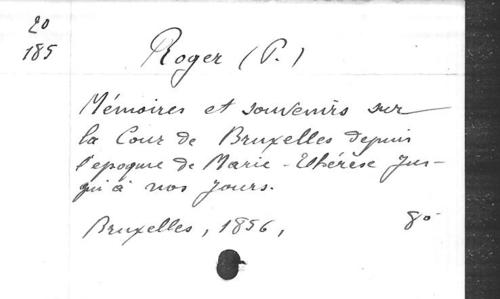 20
185
Roger (P.)
Mémoires et souvenirs sur
la Cour de Bruxelles depuis
l'epoque de Marie-Thérèse jus-
qu'à nos jours.
Bruxelles, 1856, 8o